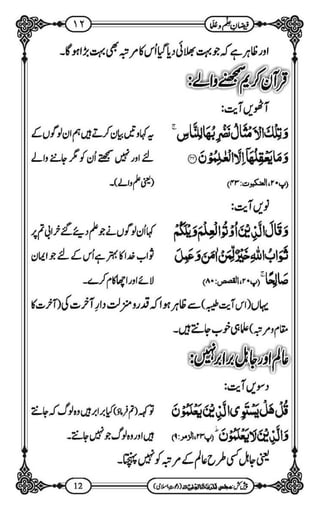 ۱۲
فیضانِ علم و علما
اور ظاہر ہے کہ جو بہت بھلائی دیا گیا اُس کا مرتبہ بھی بہت بڑا ہوگا۔
قرآن کریم سمجھنے والے:
آٹھویں آیت:
وَتِلْكَ الْاَمْثَالُ نَضْرِبُهَا لِلنَّاسِ ۚ
وَمَا یَعْقِلُهَاۤ اِلَّا الْعٰلِمُوْنَ
(پ۲۰، العنکبوت: ۴۳)
یہ کہاوتیں بیان کرتے ہیں ہم ان لوگوں کے
لئے اور نہیں سمجھتے اُن کو مگر جاننے والے
(یعنی علم والے)۔
نویں آیت:
وَقَالَ الَّذِیْنَ اُوْتُوا الْعِلْمَ وَیْلَكُمْ
ثَوَابُ اللّٰهِ خَیْرٌ لِّمَنْ اٰمَنَ وَعَمِلَ
صَالِحًا ۚ (پ۲۰، القصص: ۸۰)
کہا اُن لوگوں نے جو علم دیئے گئے خرابی تم پر
ثواب خدا کا بہتر ہے اُس کے لئے جو ایمان
لائے اور اچھا کام کرے۔
یہاں (اس آیت طیبہ) سے ظاہر ہوا کہ قدر و منزلت دارِ آخرت کی (آخرت کا
مقام و مرتبہ) علما ہی خوب جانتے ہیں۔
عالم اور جاہل برابر نہیں:
دسویں آیت:
قُلْ هَلْ یَسْتَوِی الَّذِیْنَ یَعْلَمُوْنَ
وَالَّذِیْنَ لَا یَعْلَمُوْنَ ؕ (پ۲۳، الزمر: ۹)
تو کہہ (تم فرماؤ) کیا برابر ہیں وہ لوگ کہ جانتے
ہیں اور وہ لوگ جو نہیں جانتے
یعنی جاہل کسی طرح عالم کے مرتبہ کو نہیں پہنچتا۔
12
(دعوتِ اسلامی)